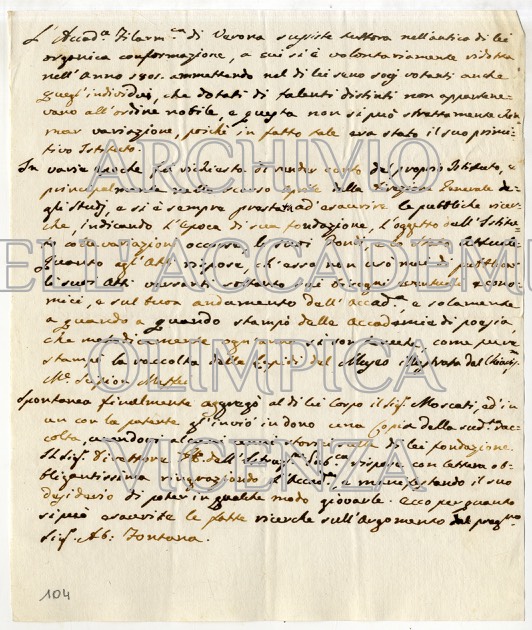 L'Accad.ª Filarm.ca di Verona sussiste tuttora nell'antica di lei
organica conformazione, a cui si è volontariamente ridotta
nell'Anno 1801. ammettendo nel di lei seno socj votanti anche
quegl'individui, che dotati di talenti distinti non appartene-
vano all'ordine nobile, e questa non si può strettamente chia-
mar variazione, poichè in fatto tale era stato il suo primi-
tivo Istituto.
In varie epoche fu richiesta di render conto del proprio Istituto, e
principalmente nello scorso Aprile dalla Direzione Generale de-
gli studj, e si è sempre prestata ad esaurire le pubbliche ricer-
che, indicando l'epoca di sua fondazione, l'oggetto dell'Istitu-
to colle variazioni occorse, li suoi Fondi e lo stato attuale.
Quanto agl'Atti rispose, ch'essa non usò mai di pubblicar
li suoi Atti versanti soltanto sui bisogni eventuali, econo-
mici, e sul buon andamento dell'Accad.ª, e solamente
a quando a quando stampò delle accademie di poesia,
che metodicamente ogni anno si son tenute, come pure
stampò la raccolta delle Lapidi del Museo illustrata dal Chiariss.
M.e Scipion Maffei.
Spontanea finalmente aggregò al di lei Corpo il Sig.r Moscati, ed in
un con la patente gl'inviò in dono una Copia della sud.ª rac-
colta, unendovi alcuni cenni storici sulla di lei fondazione.
Il Sig.r Direttore dell'Istruz.e Pub.ca rispose con lettera ob-
bligantissima ringraziando l'Accad.ª, e manifestando il suo
desiderio di poter in qualche modo giovarle. Ecco per quanto
si può esaurite le fatte ricerche sull'argomento dal pregmo
Sig.r Ab: Fontana.
104
ARCHIVIO
DELL'ACCADEMIA
OLIMPICA
VICENZA